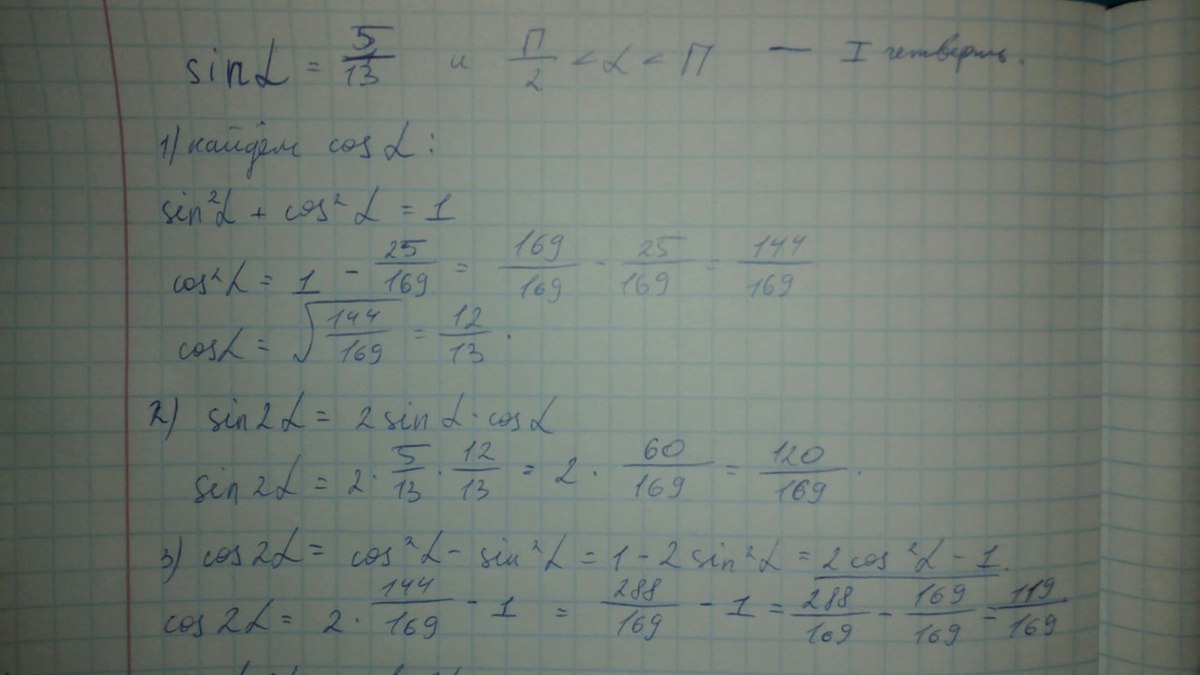 sin α = 5/13 и П/2 < α < П — I четверть.
1) найдём cos α :
sin²α + cos²α = 1
cos²α = 1 - 25/169 = 169/169 - 25/169 = 144/169
cos α = √(144/169) = 12/13 .
2) sin 2α = 2 sin α · cos α
sin 2α = 2 · 5/13 · 12/13 = 2 · 60/169 = 120/169 .
3) cos 2α = cos²α - sin²α = 1 - 2 sin²α = 2 cos²α - 1 .
cos 2α = 2 · 144/169 - 1 = 288/169 - 1 = 288/169 - 169/169 = 119/169